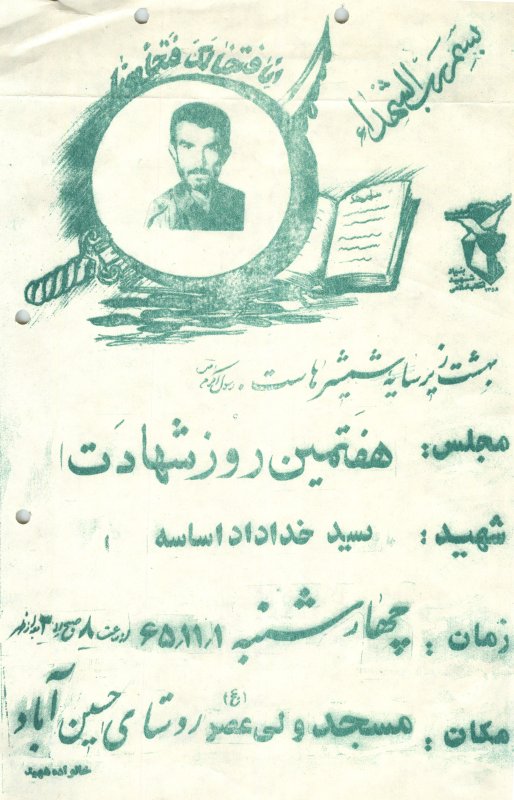 بسم رب الشهداء
انا فتحنا لک فتحا مبینا
بنیاد شهید
بهشت زیر سایه شمشیرهاست. رسول اکرم (ص)
مجلس: هفتمین روز شهادت
شهید: سید خداداد اساسه
زمان: چهارشنبه ۶۵٫۱۱٫۱ از ساعت ۸ صبح و ۳ بعدازظهر
مکان: مسجد ولی عصر (ع) روستای حسین آباد
خانواده شهید